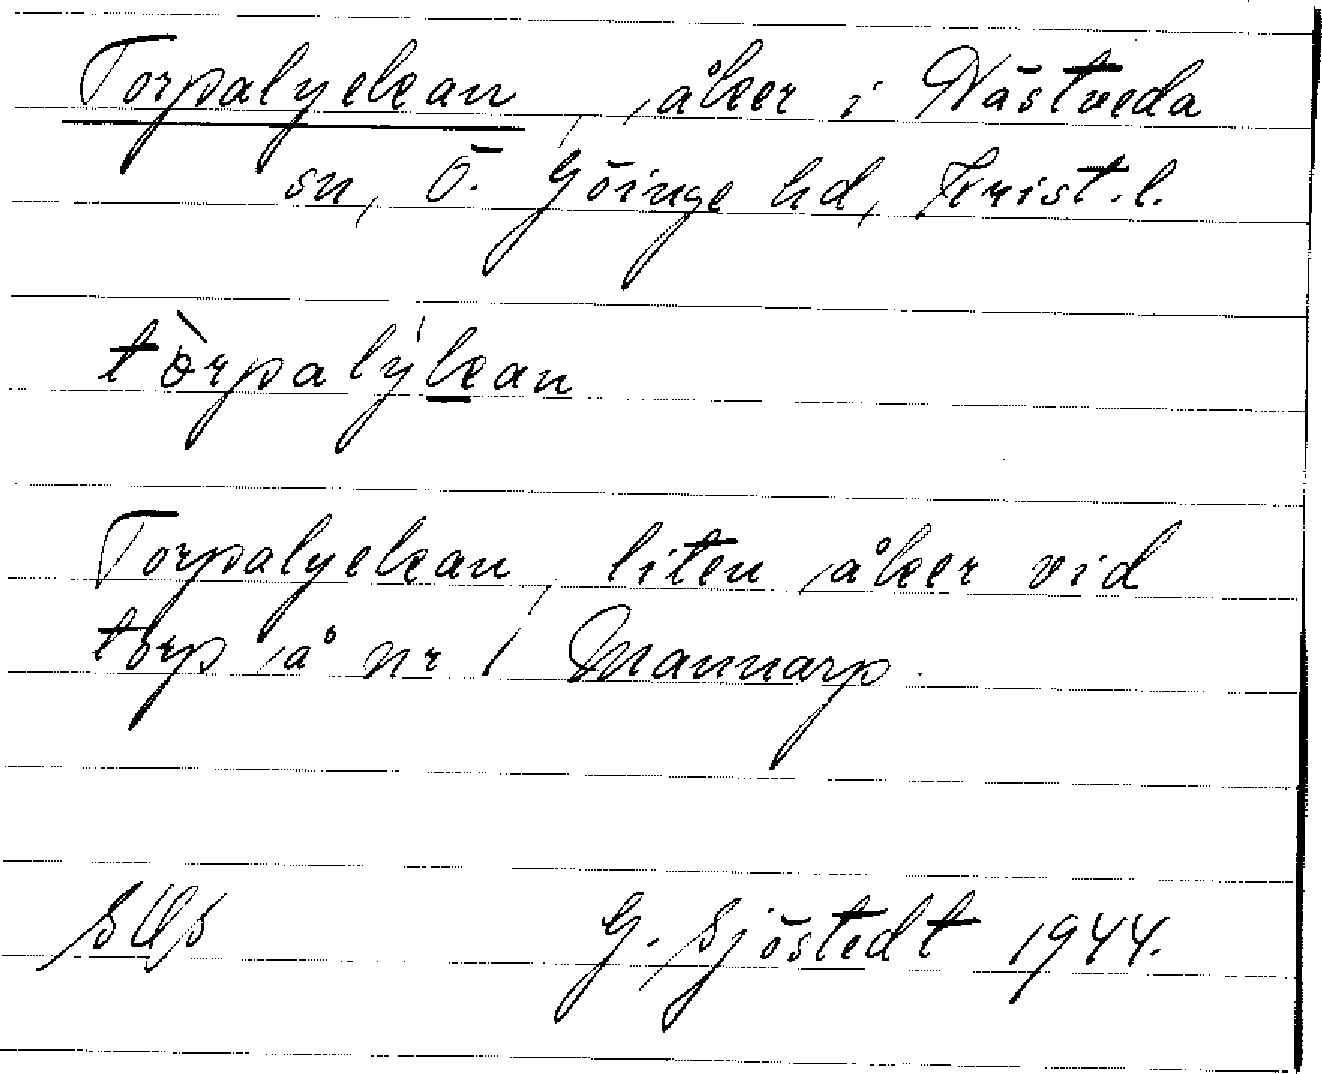 Torpalyckan, åker i Hästveda
sn, Ö. Göinge hd, Krist.l.
tòrpalýkan
Torpalyckan, liten åker vid
torp å nr 1 Mannarp.
G. Sjöstedt 1944.